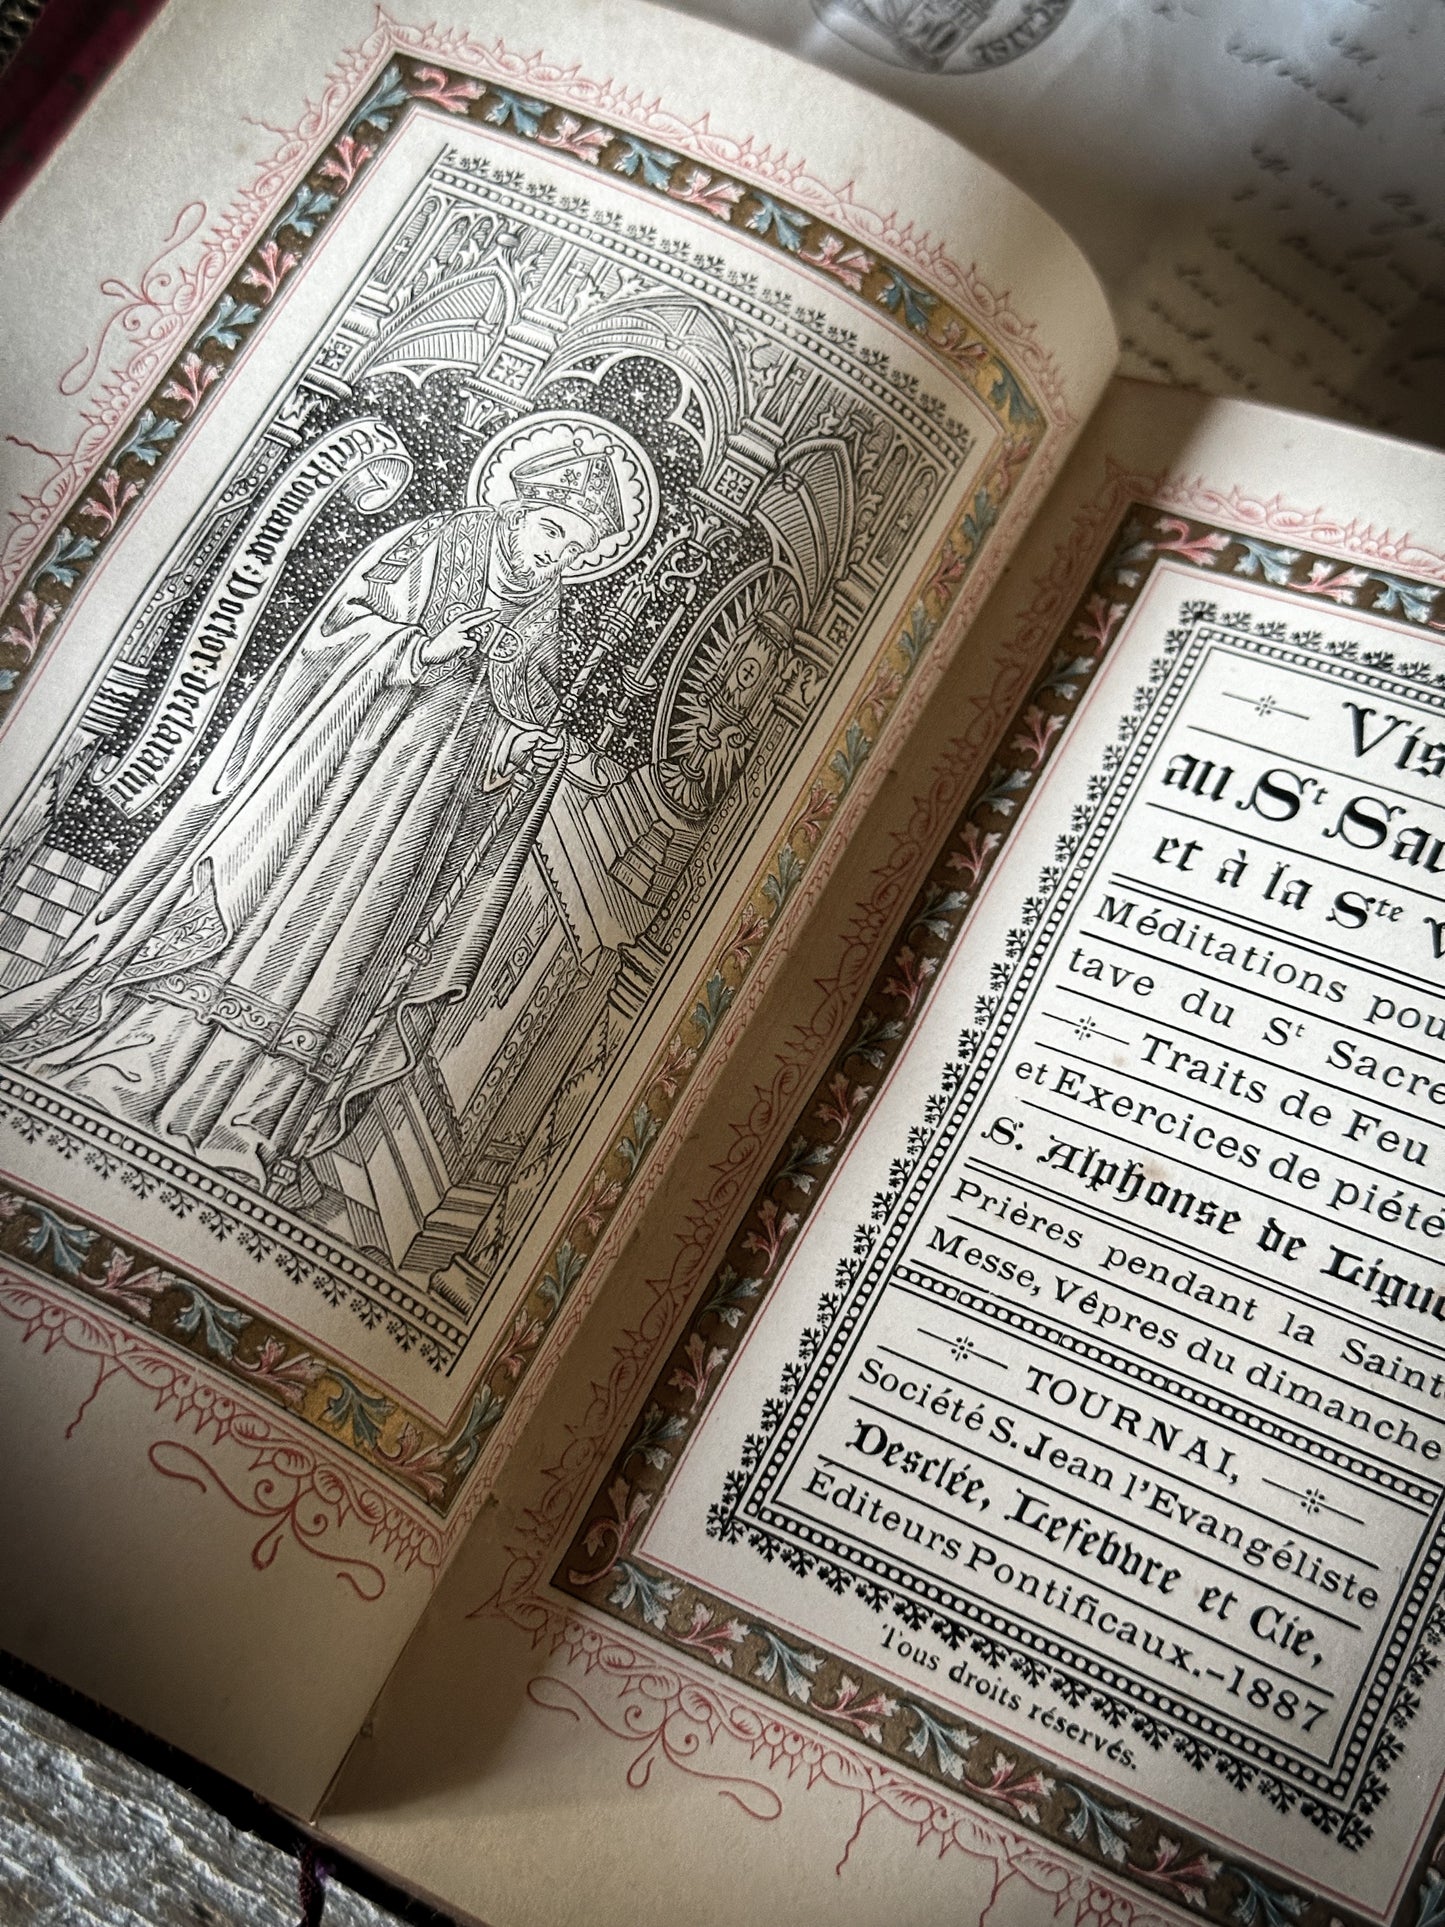 Romanæ: Doctor: declaratur
Vis
au St Sac
et à la Ste V
Méditations pou
tave du St Sacre
Traits de Feu
et Exercices de piété
S. Alphonse de Liguo
Prières pendant la Saint
Messe, Vêpres du dimanche
TOURNAI,
Société S. Jean l'Evangéliste
Desclée, Lefebvre et Cie,
Éditeurs Pontificaux.–1887
Tous droits réservés.